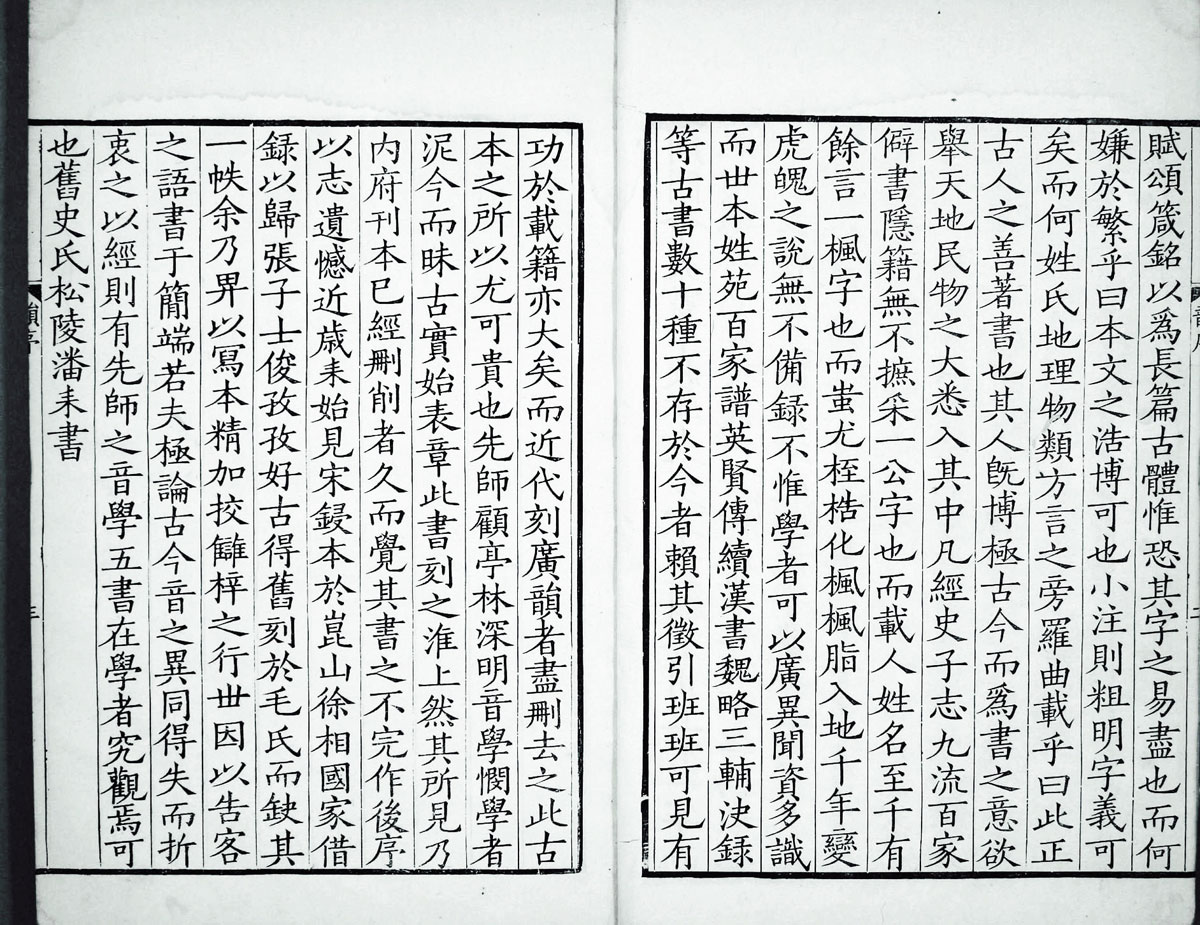 賦頌箴銘以爲長篇古體惟恐其字之易盡也而何
嫌於繁乎曰本文之浩博可也小注則粗明字義可
矣而何姓氏地理物類方言之旁羅曲載乎曰此正
古人之善著書也其人旣博極古今而爲書之意欲
舉天地民物之大悉入其中凡經史子志九流百家
僻書隱籍無不摭采一公字也而載人姓名至千有
餘言一楓字也而蚩尤桎梏化楓楓脂入地千年變
虎魄之說無不備録不惟學者可以廣異聞資多識
而世本姓苑百家譜英賢傳續漢書魏略三輔決録
等古書數十種不存於今者賴其徵引班班可見有
功於載籍亦大矣而近代刻廣韻者盡刪去之此古
本之所以尤可貴也先師顧亭林深明音學憫學者
泥今而昧古實始表章此書刻之淮上然其所見乃
内府刊本已經刪削者久而覺其書之不完作後序
以志遺憾近歳耒始見宋鋟本於崑山徐相國家借
録以歸張子士俊孜孜好古得舊刻於毛氏而缺其
一帙余乃畀以寫本精加挍讎梓之行丗因以告客
之語書于簡端若夫極論古今音之異同得失而折
衷之以經則有先師之音學五書在學者究觀焉可
也舊史氏松陵潘耒書